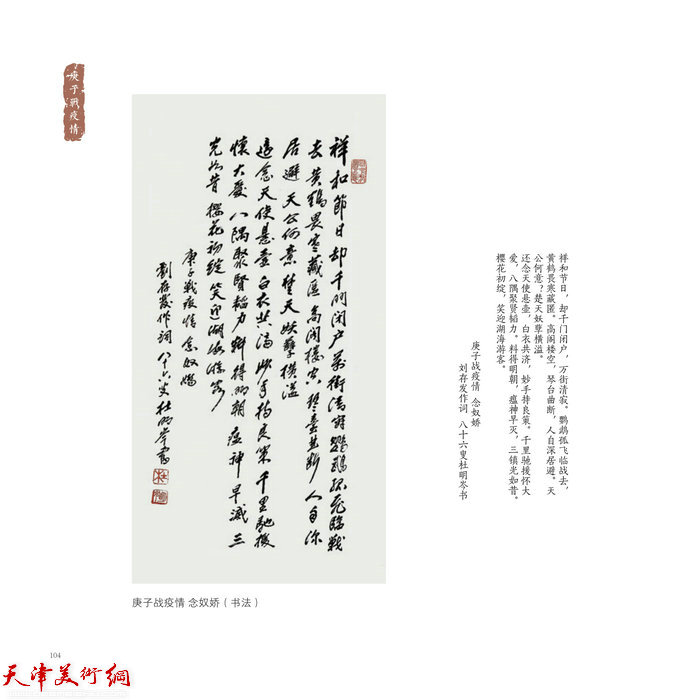 庚子戰疫情
祥和節日却千門闭户萬街清寂鹦鹉孤飛臨戰
去黄鶴畏寒藏匿高阁楼空琴臺曲断人自深
居避天公何意楚天妖孽横溢
還念天使悬壶白衣共济妙手持良策千里馳援
懷大愛八隅聚賢韬力料得明朝瘟神早滅三
光如昔樱花初绽笑迎湖海游客
庚子戰疫情念奴嬌
劉存發作詞八十六叟杜明岑書
祥和节日，却千门闭户，万街清寂。鹦鹉孤飞临战去，
黄鹤畏寒藏匿。高阁楼空，琴台曲断，人自深居避。天
公何意？楚天妖孽横溢。
还念天使悬壶，白衣共济，妙手持良策。千里驰援怀大
爱，八隅聚贤韬力。料得明朝，瘟神早灭，三镇光如昔。
樱花初绽，笑迎湖海游客。
庚子战疫情 念奴娇
刘存发作词 八十六叟杜明岑书
庚子战疫情 念奴娇（书法）
104
天津美術網